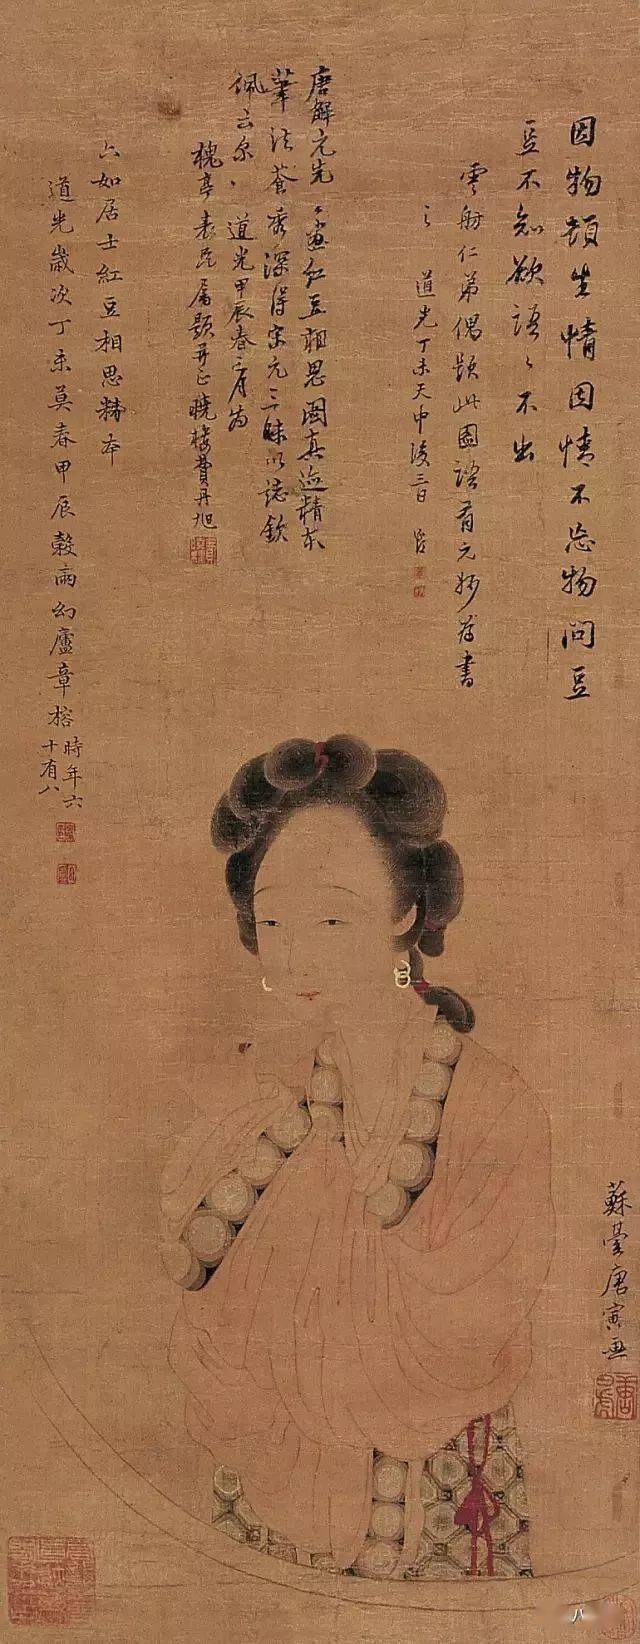 因物頓生情因情不忘物問豆
豆不知欲語〻不出
雲舫仁弟偶題此圖語有元妙為書
之 道光丁未天中後三日
唐解元先〻畫紅豆相思圖真迹精本
筆法蒼秀深得宋元三昧以誌欽
佩云尔〻道光甲辰春二月為
槐亭表兄屬題并正曉樓費丹旭
六如居士紅豆相思精本
道光歲次丁未莫春甲辰穀雨幻廬章榕時年六
十有八
蘇臺唐寅畫
唐白虎
八